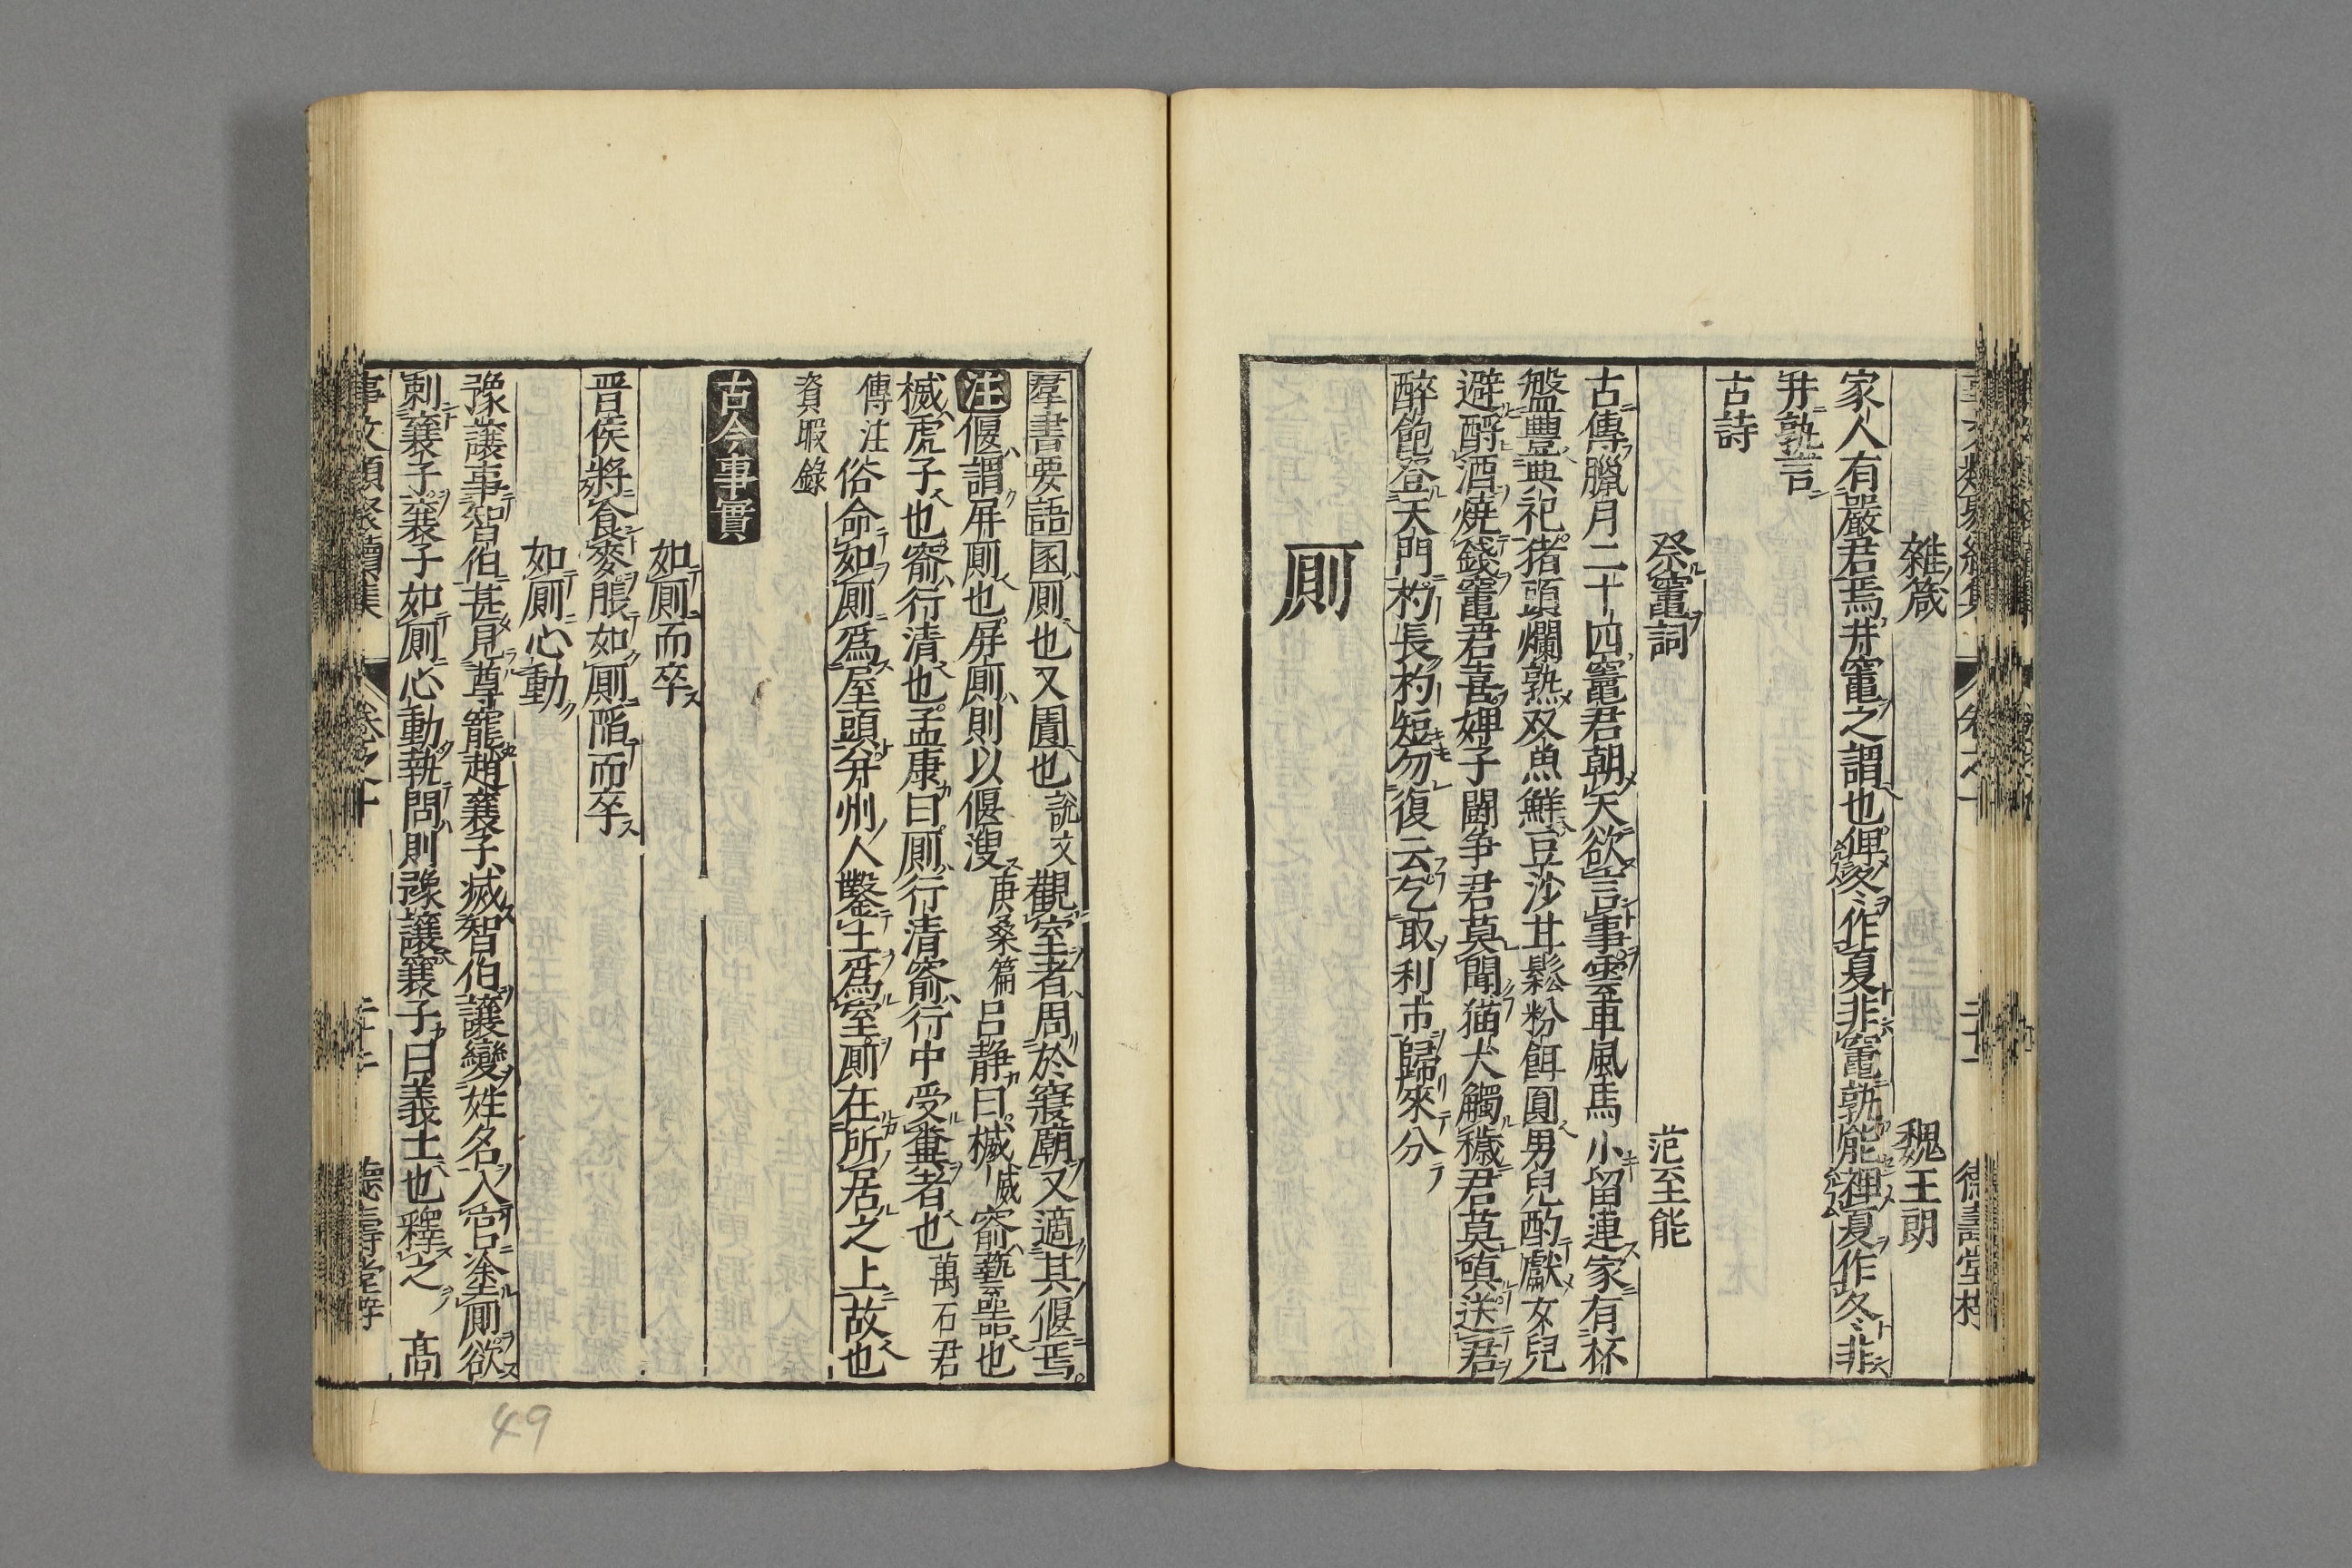 雜箴　魏王朗
家人有嚴君焉井竈之謂也俾冬作夏非竈孰能裨夏作冬非
井孰言
古詩
祭竈詞　范至能
古傳臘月二十四竈君朝天欲言事雲車風馬小留連家有杯
盤豐典祀猪頭爛熟双魚鮮豆沙甘鬆粉餌圓男兒酌獻女兒
避酹酒燒錢竈君喜婢子鬪争君莫聞猫犬觸穢君莫嗔送君
醉飽登天門杓長杓短勿復云乞取利市歸來分
厠
羣書要語圂厠也又圊也說文觀室者周於寢廟又適其偃焉
注偃謂屏厠也屏厠則以偃溲庚桑篇呂静曰楲威窬褻器也
楲虎子也窬行清也孟康曰厠行清窬行中受糞者也萬石君
傳注俗命如厠爲屋頭分州人鑿土爲室厠在所居之上故也
資暇錄
古今事實
如厠而卒
晋侯將食麥脹如厠陷而卒
如厠心動
豫讓事智伯甚見尊寵趙襄子滅智伯讓變姓名入宮塗厠欲
刺襄子襄子如厠心動執問則豫讓襄子曰義士也釋之　高
事文類聚續集　卷之十　二十二　德壽堂梓
49